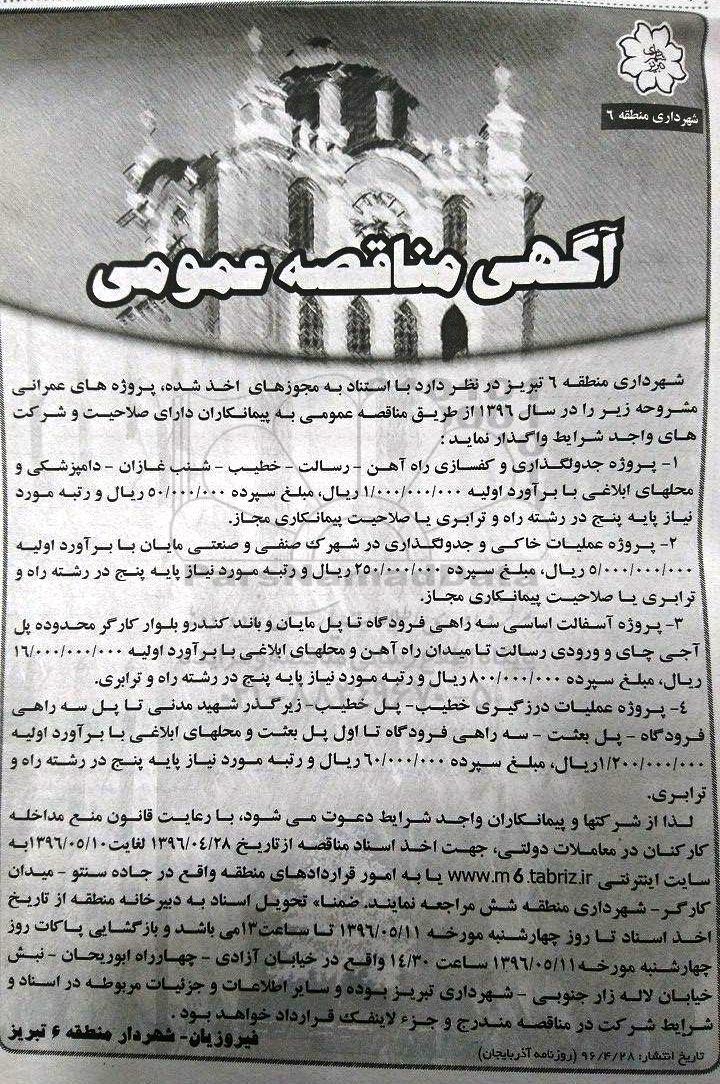 شهرداری منطقه ۶
آگهی مناقصه عمومی
شهرداری منطقه ۶ تبریز در نظر دارد با استناد به مجوزهای اخذ شده، پروژه های عمرانی
مشروحه زیر را در سال ۱۳۹۶ از طریق مناقصه عمومی به پیمانکاران دارای صلاحیت و شرکت
های واجد شرایط واگذار نماید :
۱- پروژه جدولگذاری و کفسازی راه آهن - رسالت - خطیب - شنب غازان - دامپزشکی و
محلهای ابلاغی با برآورد اولیه ۱/۰۰۰/۰۰۰/۰۰۰ ریال، مبلغ سپرده ۵۰/۰۰۰/۰۰۰ ریال و رتبه مورد
نیاز پایه پنج در رشته راه و ترابری یا صلاحیت پیمانکاری مجاز.
۲- پروژه عملیات خاکی و جدولگذاری در شهرک صنفی و صنعتی مایان با برآورد اولیه
۵/۰۰۰/۰۰۰/۰۰۰ ریال، مبلغ سپرده ۲۵۰/۰۰۰/۰۰۰ ریال و رتبه مورد نیاز پایه پنج در رشته راه و
ترابری یا صلاحیت پیمانکاری مجاز.
۳- پروژه آسفالت اساسی سه راهی فرودگاه تا پل مایان و باند کندرو بلوار کارگر محدوده پل
آجی چای و ورودی رسالت تا میدان راه آهن و محلهای ابلاغی با برآورد اولیه ۱۶/۰۰۰/۰۰۰/۰۰۰
ریال، مبلغ سپرده ۸۰۰/۰۰۰/۰۰۰ ریال و رتبه مورد نیاز پایه پنج در رشته راه و ترابری.
۴- پروژه عملیات درزگیری خطیب- پل خطیب- زیرگذر شهید مدنی تا پل سه راهی
فرودگاه - پل بعثت - سه راهی فرودگاه تا اول پل بعثت و محلهای ابلاغی با برآورد اولیه
۱/۲۰۰/۰۰۰/۰۰۰ریال، مبلغ سپرده ۶۰/۰۰۰/۰۰۰ ریال و رتبه مورد نیاز پایه پنج در رشته راه و
ترابری.
لذا از شرکتها و پیمانکاران واجد شرایط دعوت می شود، با رعایت قانون منع مداخله
کارکنان در معاملات دولتی، جهت اخذ اسناد مناقصه ازتاریخ ۱۳۹۶/۰۴/۲۸ لغایت۱۳۹۶/۰۵/۱۰به
سایت اینترنتی www.m6.tabriz.ir یا به امور قراردادهای منطقه واقع در جاده سنتو - میدان
کارگر- شهرداری منطقه شش مراجعه نمایند. ضمنا» تحویل اسناد به دبیرخانه منطقه از تاریخ
اخذ اسناد تا روز چهارشنبه مورخه ۱۳۹۶/۰۵/۱۱ تا ساعت۱۳می باشد و بازگشایی پاکات روز
چهارشنبه مورخه۱۳۹۶/۰۵/۱۱ ساعت ۱۴/۳۰ واقع در خیابان آزادی - چهارراه ابوریحان - نبش
خیابان لاله زار جنوبی - شهرداری تبریز بوده و سایر اطلاعات و جزئیات مربوطه در اسناد و
شرایط شرکت در مناقصه مندرج و جزء لاینفک قرارداد خواهد بود .
فیروزیان- شهردار منطقه ۶ تبریز
تاریخ انتشار: ۹۶/۴/۲۸ (روزنامه آذربایجان)